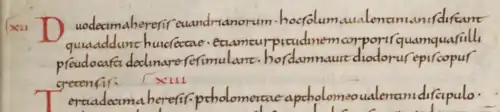 XII Duodecima heresis euandrianorum · hoc solum a ualentinianis distant
quia addunt huic sectae · etiam turpitudinem corporis quamquam si illi
pseudocasti declinare se simulant · hos damnauit diodorus episcopus
cretensis · XIII
Tertiadecima heresis · ptholomeitae a ptholomeo ualentini discipulo ·